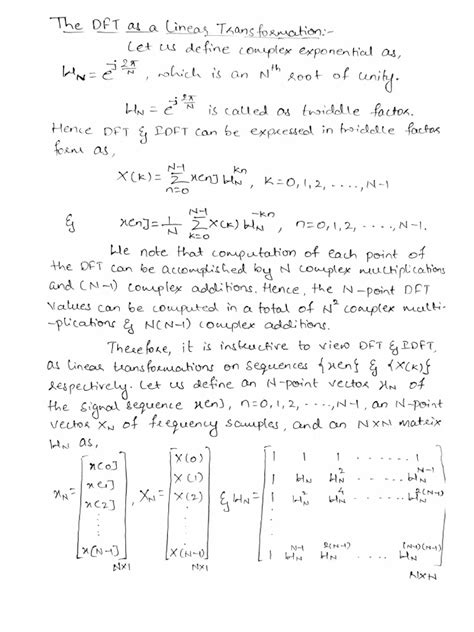 The DFT as a Linear Transformation:-
Let us define complex exponential as,
W_N = e^{-j 2π/N}, which is an N^th root of unity.
W_N = e^{-j 2π/N} is called as twiddle factor.
Hence DFT & IDFT can be expressed in twiddle factor
form as,
X(k) = Σ_{n=0}^{N-1} x[n] W_N^{kn}, k = 0, 1, 2, ....., N-1
& x[n] = 1/N Σ_{k=0}^{N-1} X(k) W_N^{-kn}, n = 0, 1, 2, ...., N-1.
We note that computation of each point of
the DFT can be accomplished by N complex multiplications
and (N-1) complex additions. Hence, the N-point DFT
values can be computed in a total of N² complex multi-
-plications & N(N-1) complex additions.
Therefore, it is instructive to view DFT & IDFT,
as linear transformations on sequences {x[n]} & {X(k)}
respectively. Let us define an N-point vector x_N of
the signal sequence x[n], n = 0, 1, 2, ...., N-1, an N-point
vector X_N of frequency samples, and an N×N matrix
W_N as,
x_N = [x[0] x[1] x[2] ... x[N-1]] N×1, X_N = [X(0) X(1) X(2) ... X(N-1)] N×1 & W_N = [
1 1 1 ...... 1
1 W_N W_N^2 .... W_N^{N-1}
1 W_N^2 W_N^4 .... W_N^{2(N-1)}
1 W_N^{N-1} W_N^{2(N-1)} .... W_N^{(N-1)(N-1)}
] N×N